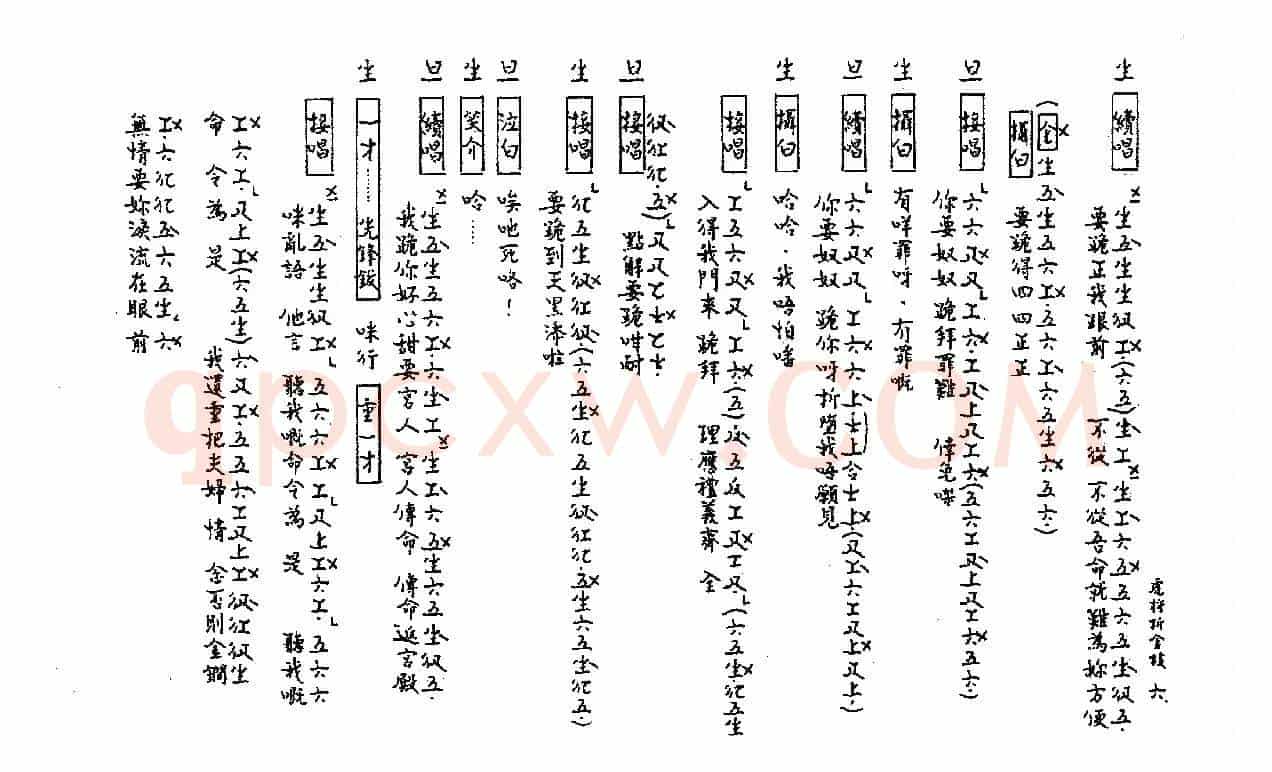 折金枝 六
生 續唱 生五生生仅工(六五)生工生工六五五六五生仅五.
要跪正我跟前 不從 不從吾命就難為妳方便
(仝生五生五六工.五六工六五生六五六.)
攝白 要跪得四四正正
旦 接唱 六六又又工六工又上又工六(五六工又上又工六五六.)
你要奴奴 跪拜罪難 倖免㗎
生 攝白 有咩罪呀.冇罪嘅
旦 續唱 六六又又工六六上士上合士上(又工六工又上又上)
你要奴奴 跪你呀折墮我唔願見
生 攝白 哈哈.我唔怕噃
接唱 工五六又又工六.(五)反五反工又工.又.(六五生.伬五生
入得我門來 跪拜 理應禮義齊全
仅仜伬.五)
旦 接唱 又又乙士乙士.
點解要跪咁耐
生 接唱 伬五生仅仜仅(六五生伬五生仅仜伬.五生六五生伬五.)
要跪到天黑漆啦
旦 泣白 唉吔死咯!
生 笑介 哈……
旦 續唱 生五生五六工.六生工生工六五生六五生仅五.
我跪你好心甜要宮人 宮人傳命 傳命返宮殿
生 一才……先鋒鈸 咪行 重一才
接唱 生五生生仅工 五六六工工又上工六工. 五六六
咪亂語 他言 聽我嘅命令為 是 聽我嘅
工六工.又上工(六五生)六又工.五五六工又上工仅仜仅生
命 令為 是 我還重把夫婦 情 念否則金鐧
工.六伬伬五六五生.六
無情要妳淚流在眼 前
qpcxw.COM